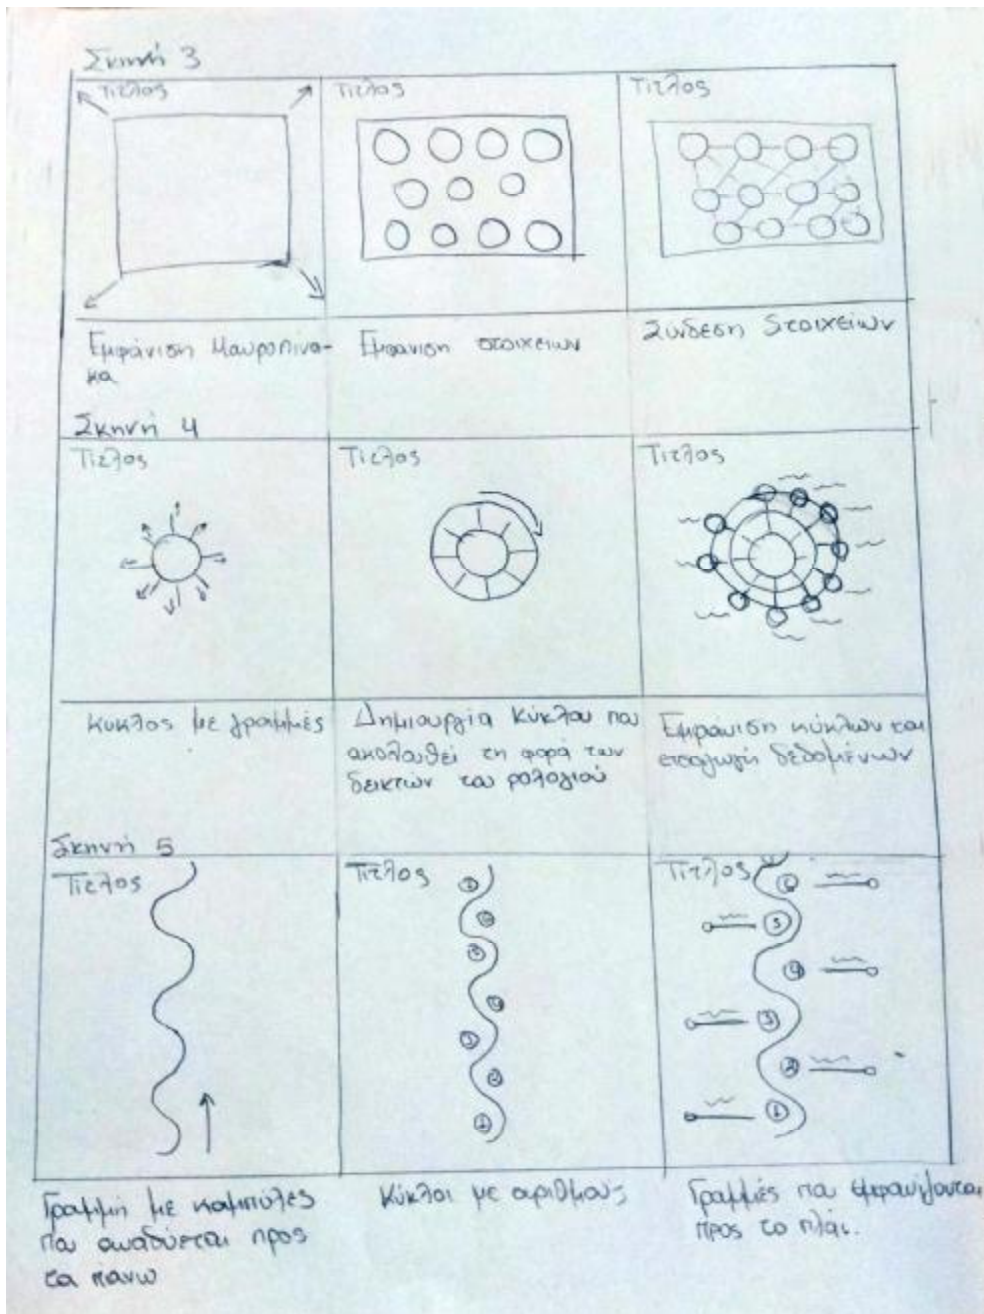 Σκηνή 3
Τίτλος Τίτλος Τίτλος
Εμφάνιση Μαυροπίνα-
κα
Εμφάνιση στοιχείων
Σύνδεση Στοιχείων
Σκηνή 4
Τίτλος Τίτλος Τίτλος
Κύκλος με γραμμές
Δημιουργία κύκλου που
ακολουθεί τη φορά των
δεικτών του ρολογιού
Εμφάνιση κύκλων και
εισαγωγή δεδομένων
Σκηνή 5
Τίτλος Τίτλος Τίτλος
6
5
4
3
2
1
Γραμμή με καμπύλες
που αναδύεται προς
τα πανω
Κύκλοι με αριθμούς
Γραμμές που εμφανίζονται
προς το πλάι.